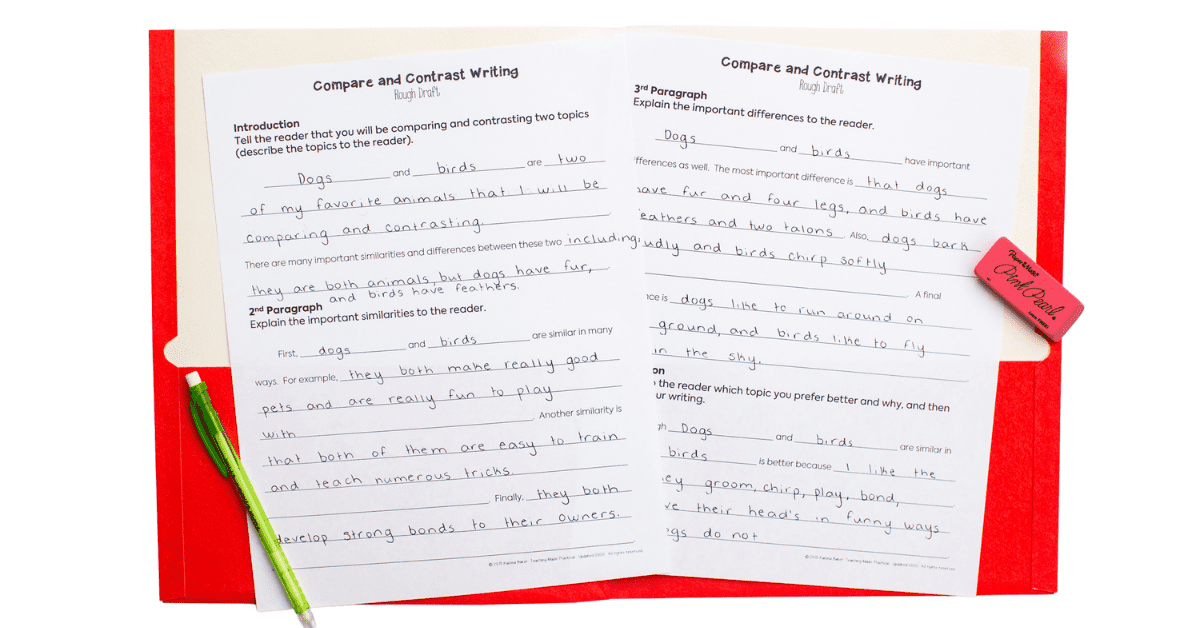 Compare and Contrast Writing
Rough Draft
Introduction
Tell the reader that you will be comparing and contrasting two topics
(describe the topics to the reader).
Dogs and birds are two
of my favorite animals that I will be
comparing and contrasting.
There are many important similarities and differences between these two including,
they are both animals, but dogs have fur,
and birds have feathers.
2nd Paragraph
Explain the important similarities to the reader.
First, dogs and birds are similar in many
ways. For example, they both make really good
pets and are really fun to play
with. Another similarity is
that both of them are easy to train
and teach numerous tricks.
Finally, they both
develop strong bonds to their owners.
Compare and Contrast Writing
Rough Draft
3rd Paragraph
Explain the important differences to the reader.
Dogs and birds have important
differences as well. The most important difference is that dogs
have fur and four legs, and birds have
eathers and two talons. Also, dogs bark
udly and birds chirp softly
A final
nce is dogs like to run around on
ground, and birds like to fly
in the sky.
on
the reader which topic you prefer better and why, and then
ur writing.
gh Dogs and birds are similar in
birds is better because I like the
ey groom, chirp, play, bond,
ve their head's in funny ways
gs do not
PaperMate
Pink Pearl